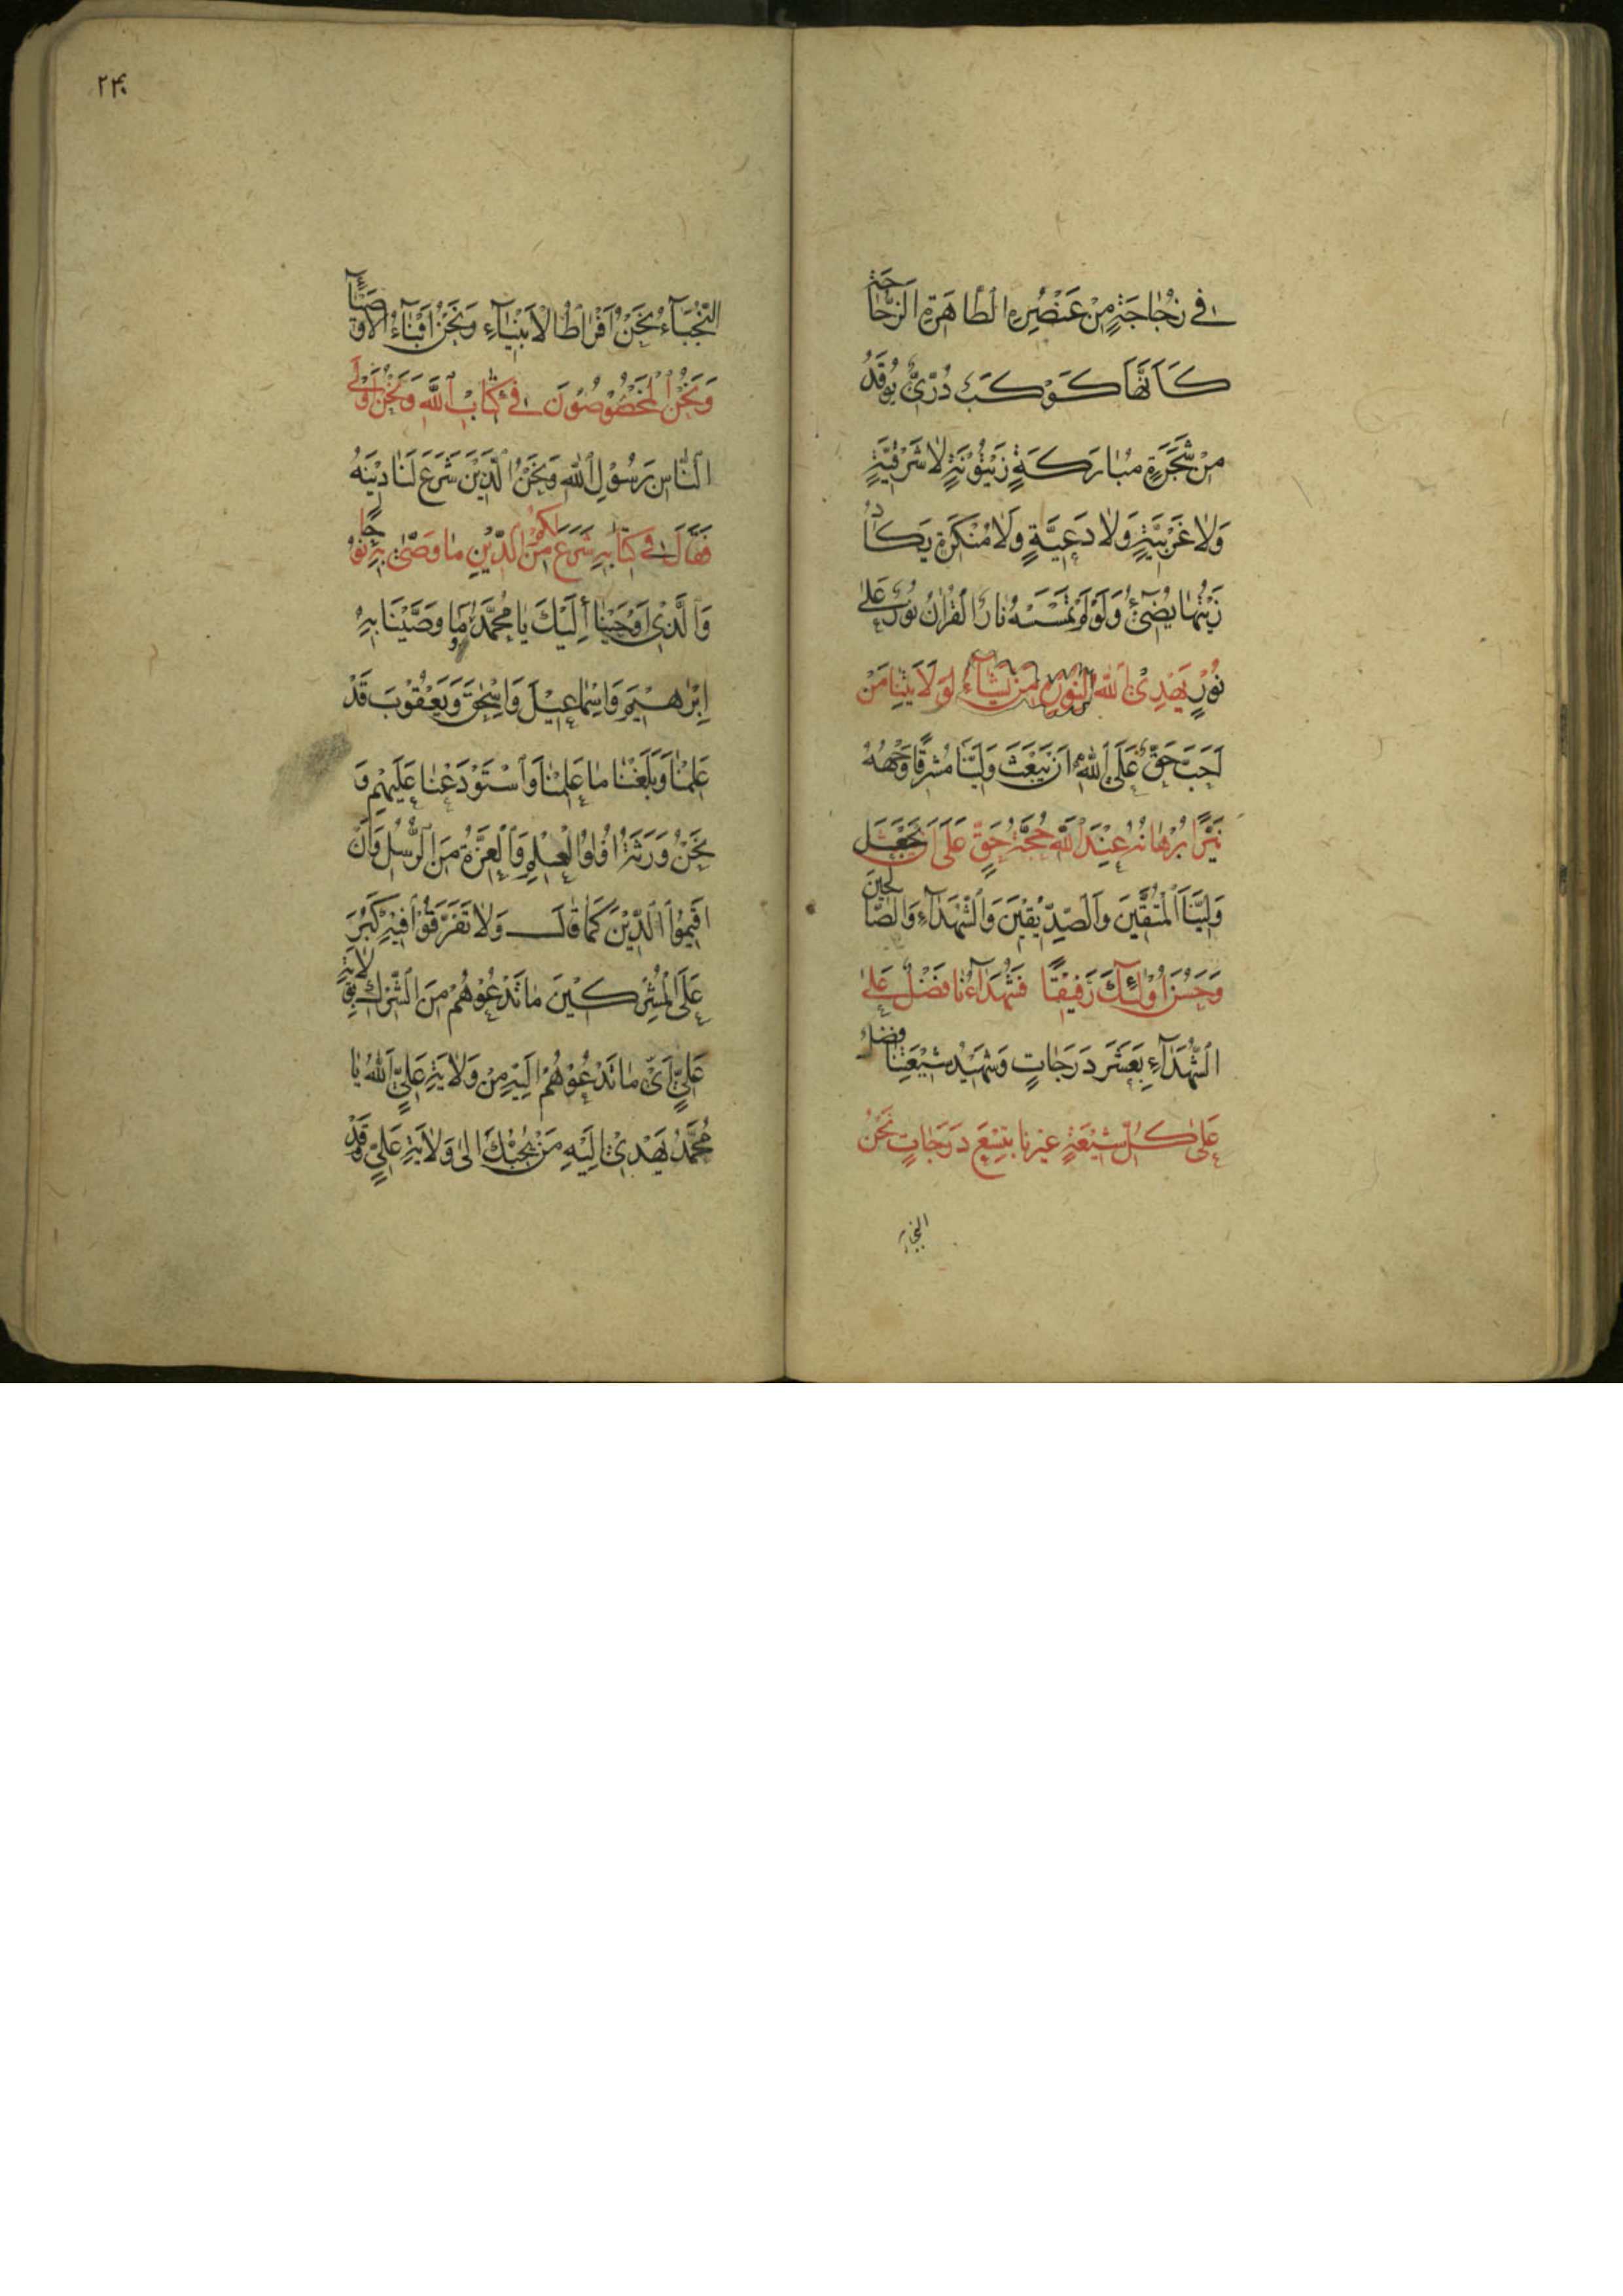 فِي زُجَاجَةٍ مِنْ عُنْصُرِهِ الطَّاهِرَةِ الزُّجَاجَةُ
كَأَنَّهَا كَوْكَبٌ دُرِّيٌّ يُوقَدُ
مِنْ شَجَرَةٍ مُبَارَكَةٍ زَيْتُونَةٍ لَا شَرْقِيَّةٍ
وَلَا غَرْبِيَّةٍ وَلَا دَعِيَّةٍ وَلَا مُنْكَرَةٍ يَكَادُ
زَيْتُهَا يُضِيءُ وَلَوْ لَمْ تَمْسَسْهُ نَارُ الْقُرْآنُ نُورٌ عَلَى
نُورٍ يَهْدِي اللَّهُ لِنُورِهِ مَنْ يَشَاءُ لِوَلَايَتِنَا مَنْ
أَحَبَّ حَقٌّ عَلَى اللَّهِ أَنْ يَبْعَثَ وَلِيَّنَا مُشْرِقًا وَجْهُهُ
نَيِّرًا بُرْهَانُهُ عِنْدَ اللَّهِ حُجَّتُهُ حَقٌّ عَلَى أَنْ يَجْعَلَ
وَلِيَّنَا الْمُتَّقِينَ وَالصِّدِّيقِينَ وَالشُّهَدَاءِ وَالصَّالِحِينَ
وَحَسُنَ أُولَئِكَ رَفِيقًا فَشُهَدَاؤُنَا فَضْلٌ عَلَى
الشُّهَدَاءِ بِعَشْرِ دَرَجَاتٍ وَشَهِيدُ شِيعَتِنَا فَضْلٌ
عَلَى كُلِّ شِيعَةٍ غَيْرِنَا بِتِسْعِ دَرَجَاتٍ نَحْنُ
۲۴۰
النُّجَبَاءُ نَحْنُ أَفْرَاطُ الْأَنْبِيَاءِ وَنَحْنُ أَبْنَاءُ الْأَوْصِيَاءِ
وَنَحْنُ الْمَخْصُوصُونَ فِي كِتَابِ اللَّهِ وَنَحْنُ أَوْلَى
النَّاسِ بِرَسُولِ اللَّهِ وَنَحْنُ الَّذِينَ شَرَعَ لَنَا دِينَهُ
فَقَالَ فِي كِتَابِهِ شَرَعَ لَكُمْ مِنَ الدِّينِ مَا وَصَّى بِهِ نُوحًا
وَالَّذِي أَوْحَيْنَا إِلَيْكَ يَا مُحَمَّدُ وَمَا وَصَّيْنَا بِهِ
إِبْرَاهِيمَ وَإِسْمَاعِيلَ وَإِسْحَقَ وَيَعْقُوبَ قَدْ
عَلِمْنَا وَبَلَّغْنَا مَا عَلِمْنَا وَاسْتَوْدَعْنَا عَلَيْهِمْ وَ
نَحْنُ وَرَثَةُ أُولُو الْعِلْمِ وَالْعِزَّةِ مِنَ الرُّسُلِ وَأَنْ
أَقِيمُوا الدِّينَ كَمَا قَالَ وَلَا تَتَفَرَّقُوا فِيهِ كَبُرَ
عَلَى الْمُشْرِكِينَ مَا تَدْعُوهُمْ مِنَ الشِّرْكِ بِوَلَايَةِ
عَلِيٍّ أَيْ مَا تَدْعُوهُمْ إِلَيْهِ مِنْ وَلَايَةِ عَلِيٍّ اللَّهُ يَا
مُحَمَّدُ يَهْدِي إِلَيْهِ مَنْ يُجِبْكَ إِلَى وَلَايَةِ عَلِيٍّ وَقَدْ